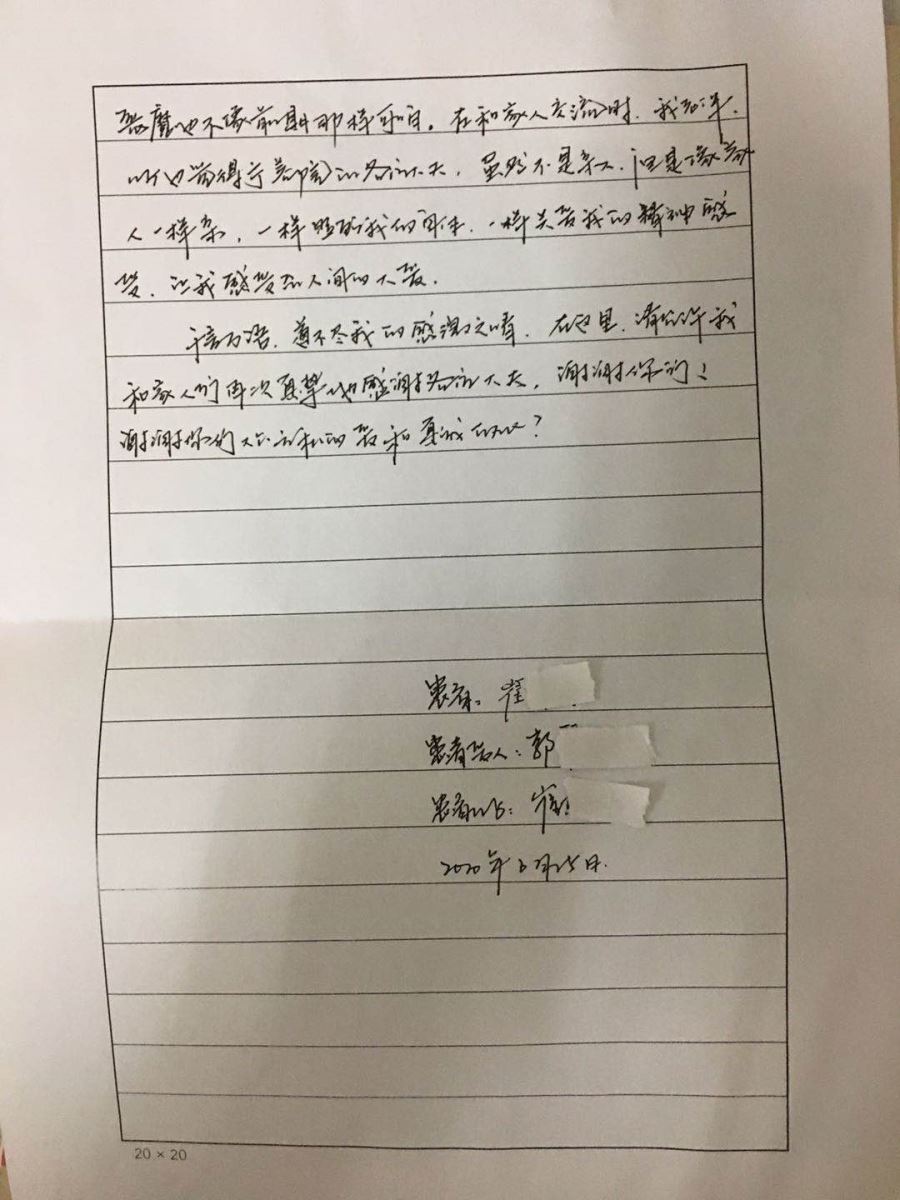 也不像前期那样。在和家人交流时，我
的各位大夫，虽然不是亲人，但是像家
人一样亲，一样照顾我的身体，一样关爱我的精神感
受，让我感受到人间的大爱。
千言万语，道不尽我的感激之情，在这里，请允许我
和家人们再次真挚地感谢各位大夫，谢谢你们！
谢谢你们大公无私的爱和真诚的心？
患者：崔
患者爱人：郭
患者：崔
2020年6月25日
20 × 20